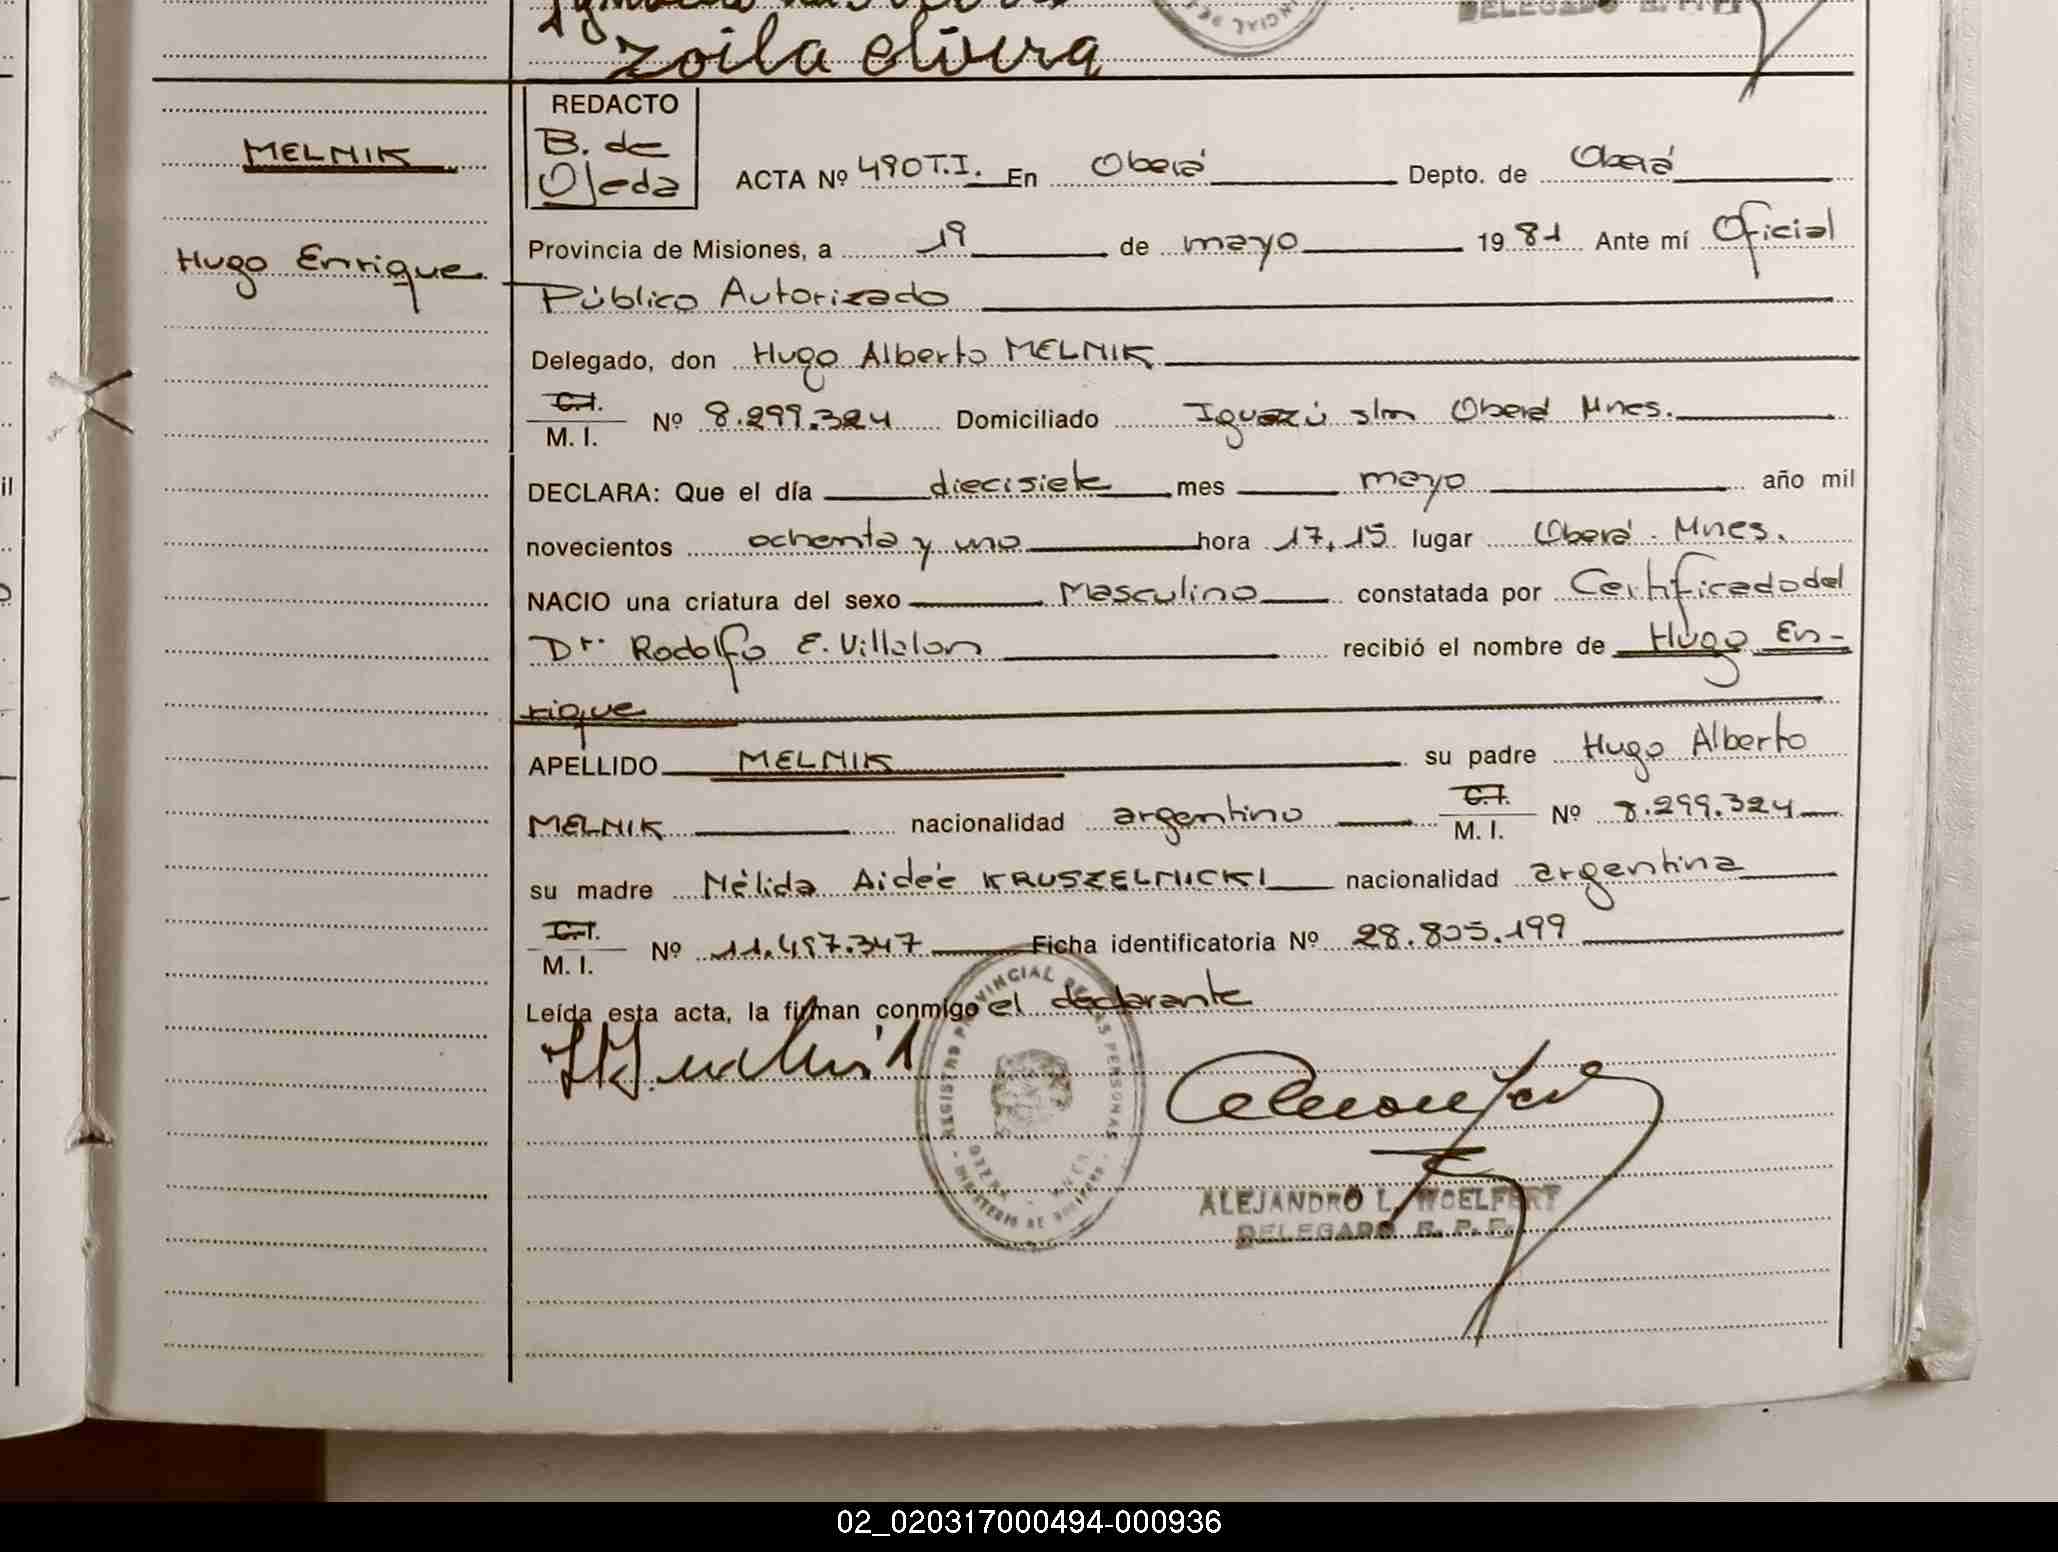 Zoila elvira
DELEGADO R. P. P.
MELNIK
Hugo Enrique
REDACTO
B. de
Ojeda
ACTA Nº 490 T.I. En Oberá Depto. de Oberá
Provincia de Misiones, a 19 de mayo 1981 Ante mí Oficial
Público Autorizado
Delegado, don Hugo Alberto MELNIK
C.I.
M. I. Nº 8.299.324 Domiciliado Iguazú s/n Oberá Mnes.
DECLARA: Que el día diecisiete mes mayo año mil
novecientos ochenta y uno hora 17,15 lugar Oberá. Mnes.
NACIO una criatura del sexo Masculino constatada por Certificado del
Dr. Rodolfo E. Villalon recibió el nombre de Hugo En-
rique
APELLIDO MELNIK su padre Hugo Alberto
MELNIK nacionalidad argentino C.I. M. I. Nº 8.299.324
su madre Nélida Aideé KRUSZELNICKI nacionalidad argentina
C.I.
M. I. Nº 11.497.347 Ficha identificatoria Nº 28.805.199
Leída esta acta, la firman conmigo el declarante
REGISTRO PROVINCIAL DE LAS PERSONAS
ALEJANDRO L. WOELFERT
DELEGADO R. P. P.
02_020317000494-000936